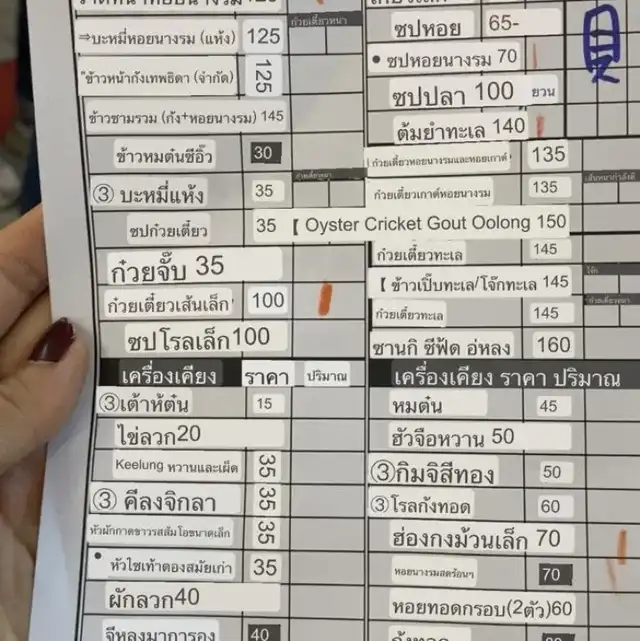 ⇒บะหมี่หอยนางรม (แห้ง) 125
ก๋วยเตี๋ยวหนา
ข้าวหน้ากังเทพธิดา (จำกัด) 125
ข้าวชามรวม (กัง+หอยนางรม) 145
ข้าวหมตุ๋นซีอิ๊ว 30
③ บะหมี่แห้ง 35
ซปก๋วยเตี๋ยว 35
ก๋วยจั๊บ 35
ก๋วยเตี๋ยวเส้นเล็ก 100
ซปโรลเล็ก100
เครื่องเคียง ราคา ปริมาณ
③เต้าหู้ตุ๋น 15
ไข่ลวก20
Keelung หวานและเผ็ด 35
③ คีลงจิกลา 35
35
• หัวไชเท้าดองสมัยเก่า 35
ผักลวก40
จีหลงมาการอง 40
ซปหอย 65-
• ซปหอยนางรม 70
ซปปลา 100 ยวน
ต้มยำทะเล 140
ก๋วยเตี๋ยวหอยนางรมและหอยเกาต์ 135
ก๋วยเตี๋ยวเกาต์หอยนางรม 135
【 Oyster Cricket Gout Oolong 150
ก๋วยเตี๋ยวทะเล 145
【 ข้าวเปี๊บทะเล/โจ๊กทะเล 145
โจ๊ก
ก๋วยเตี๋ยวทะเล 145
ซานกิ ซีฟู้ด อ่หลง 160
เครื่องเคียง ราคา ปริมาณ
หมตุ๋น 45
ฮัวจือหวาน 50
③กิมจิสีทอง 50
③โรลกังทอด 60
ฮ่องกงม้วนเล็ก 70
หอยนางรมสดร้อนๆ 70
หอยทอดกรอบ(2ตัว)60